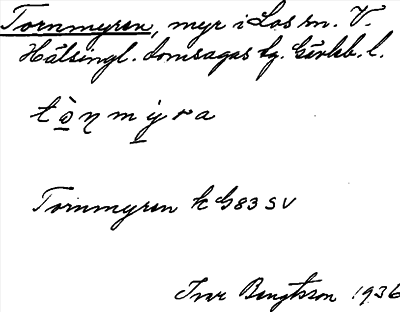 Tornmyren, myr i Los sn. V.
Hälsingl. domsagas tg. Gävleb. l.
tò̱ṇmỳ̱ra
Tornmyren k G83 SV
Ivar Bengtsson 1936